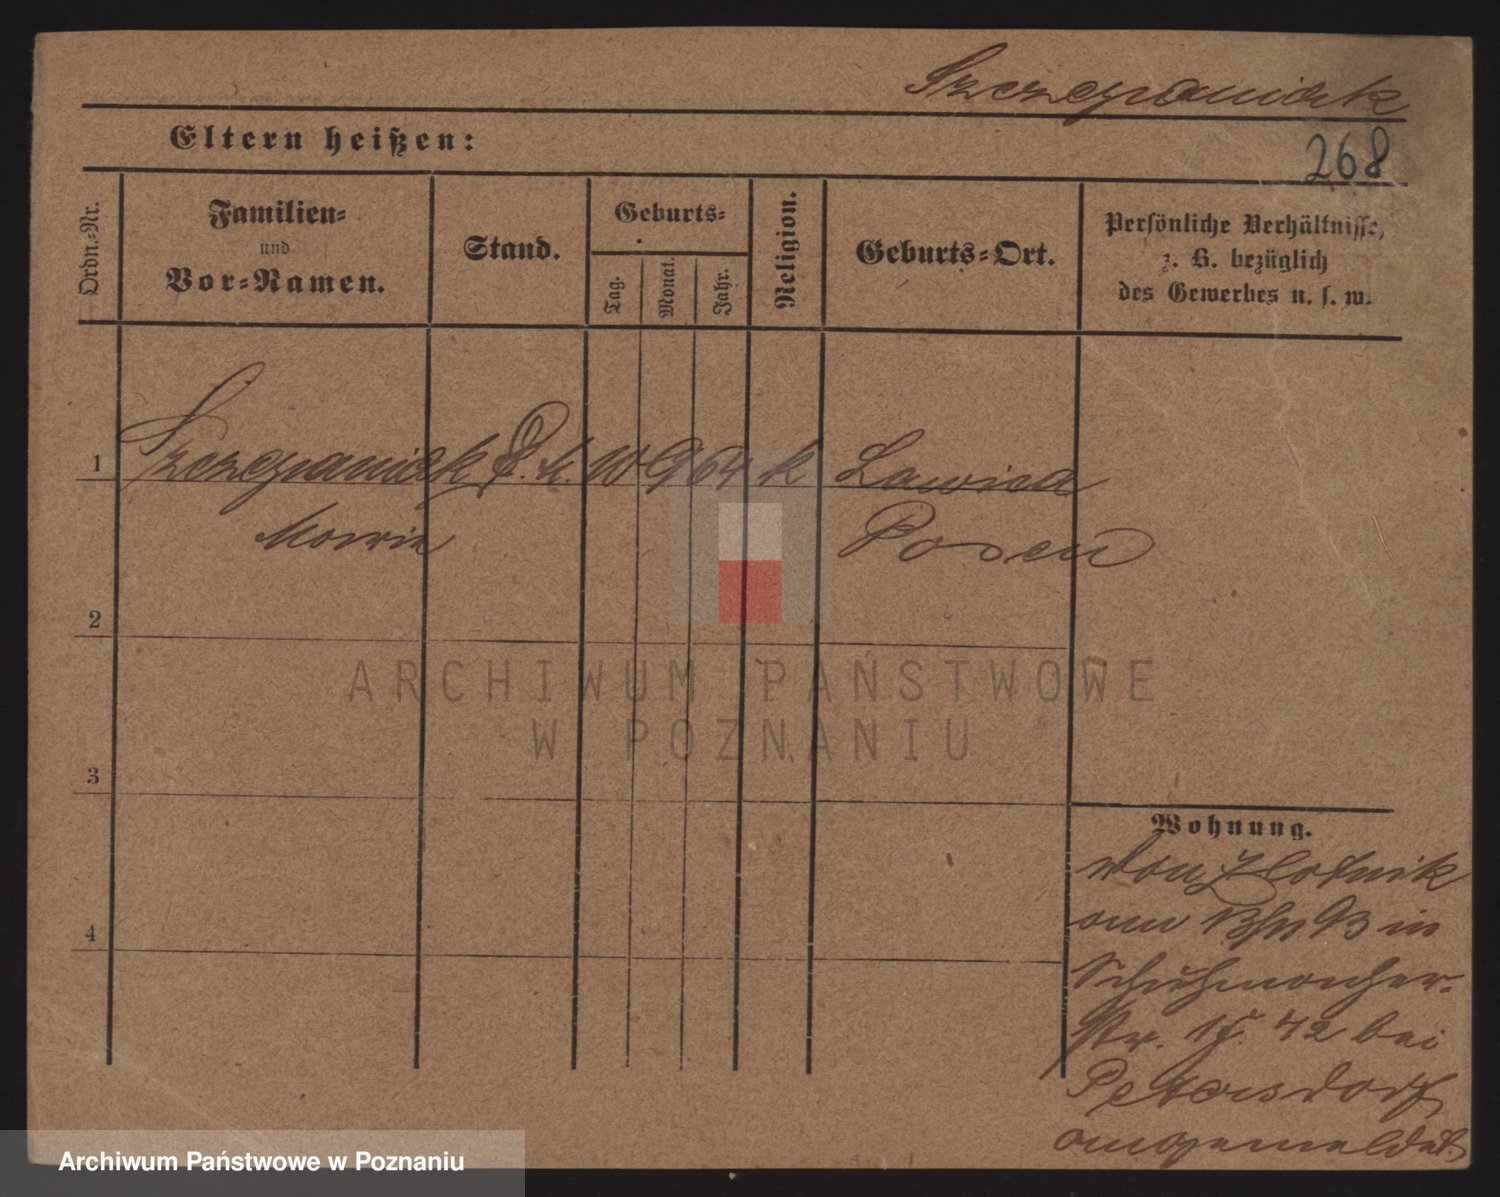 Szczepaniak
Eltern heißen:
268
Ordn.-Nr.
Familien-
und
Vor-Namen.
Stand.
Geburts-
Tag.
Monat.
Jahr.
Religion.
Geburts-Ort.
Persönliche Verhältnisse,
z. B. bezüglich
des Gewerbes u. s. w.
1 Szczepaniak 9 64 k Lawica
Marie Posen
2
ARCHIWUM PAŃSTWOWE
W POZNANIU
3
Wohnung.
von Zlotnik
am 93 in
Schuhmacher-
str. 12 bei
Petersdorf
angemeldet.
4
Archiwum Państwowe w Poznaniu